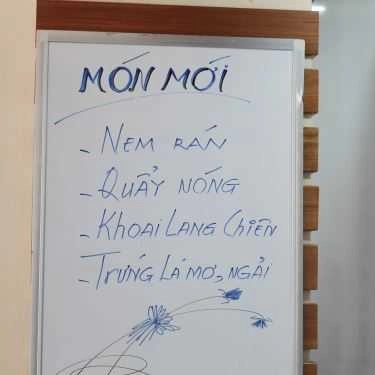 MÓN MỚI
- NEM RÁN
- QUẨY NÓNG
- KHOAI LANG CHIÊN
- TRỨNG LÁ MƠ, NGẢI